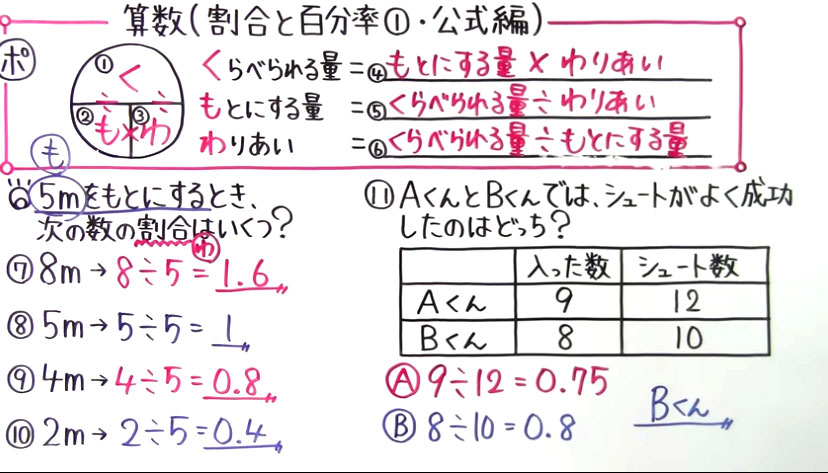 算数(割合と百分率①・公式編)
ポ
① く
② も × ③ わ
÷ ÷
くらべられる量 = ④もとにする量 × わりあい
もとにする量 = ⑤くらべられる量 ÷ わりあい
わりあい = ⑥くらべられる量 ÷ もとにする量
も
5mをもとにするとき、
次の数の割合はいくつ?
わ
⑦ 8m → 8÷5 = 1.6
⑧ 5m → 5÷5 = 1
⑨ 4m → 4÷5 = 0.8
⑩ 2m → 2÷5 = 0.4
⑪ AくんとBくんでは、シュートがよく成功
したのはどっち?
入った数 シュート数
Aくん 9 12
Bくん 8 10
Ⓐ 9÷12 = 0.75
Ⓑ 8÷10 = 0.8
Bくん